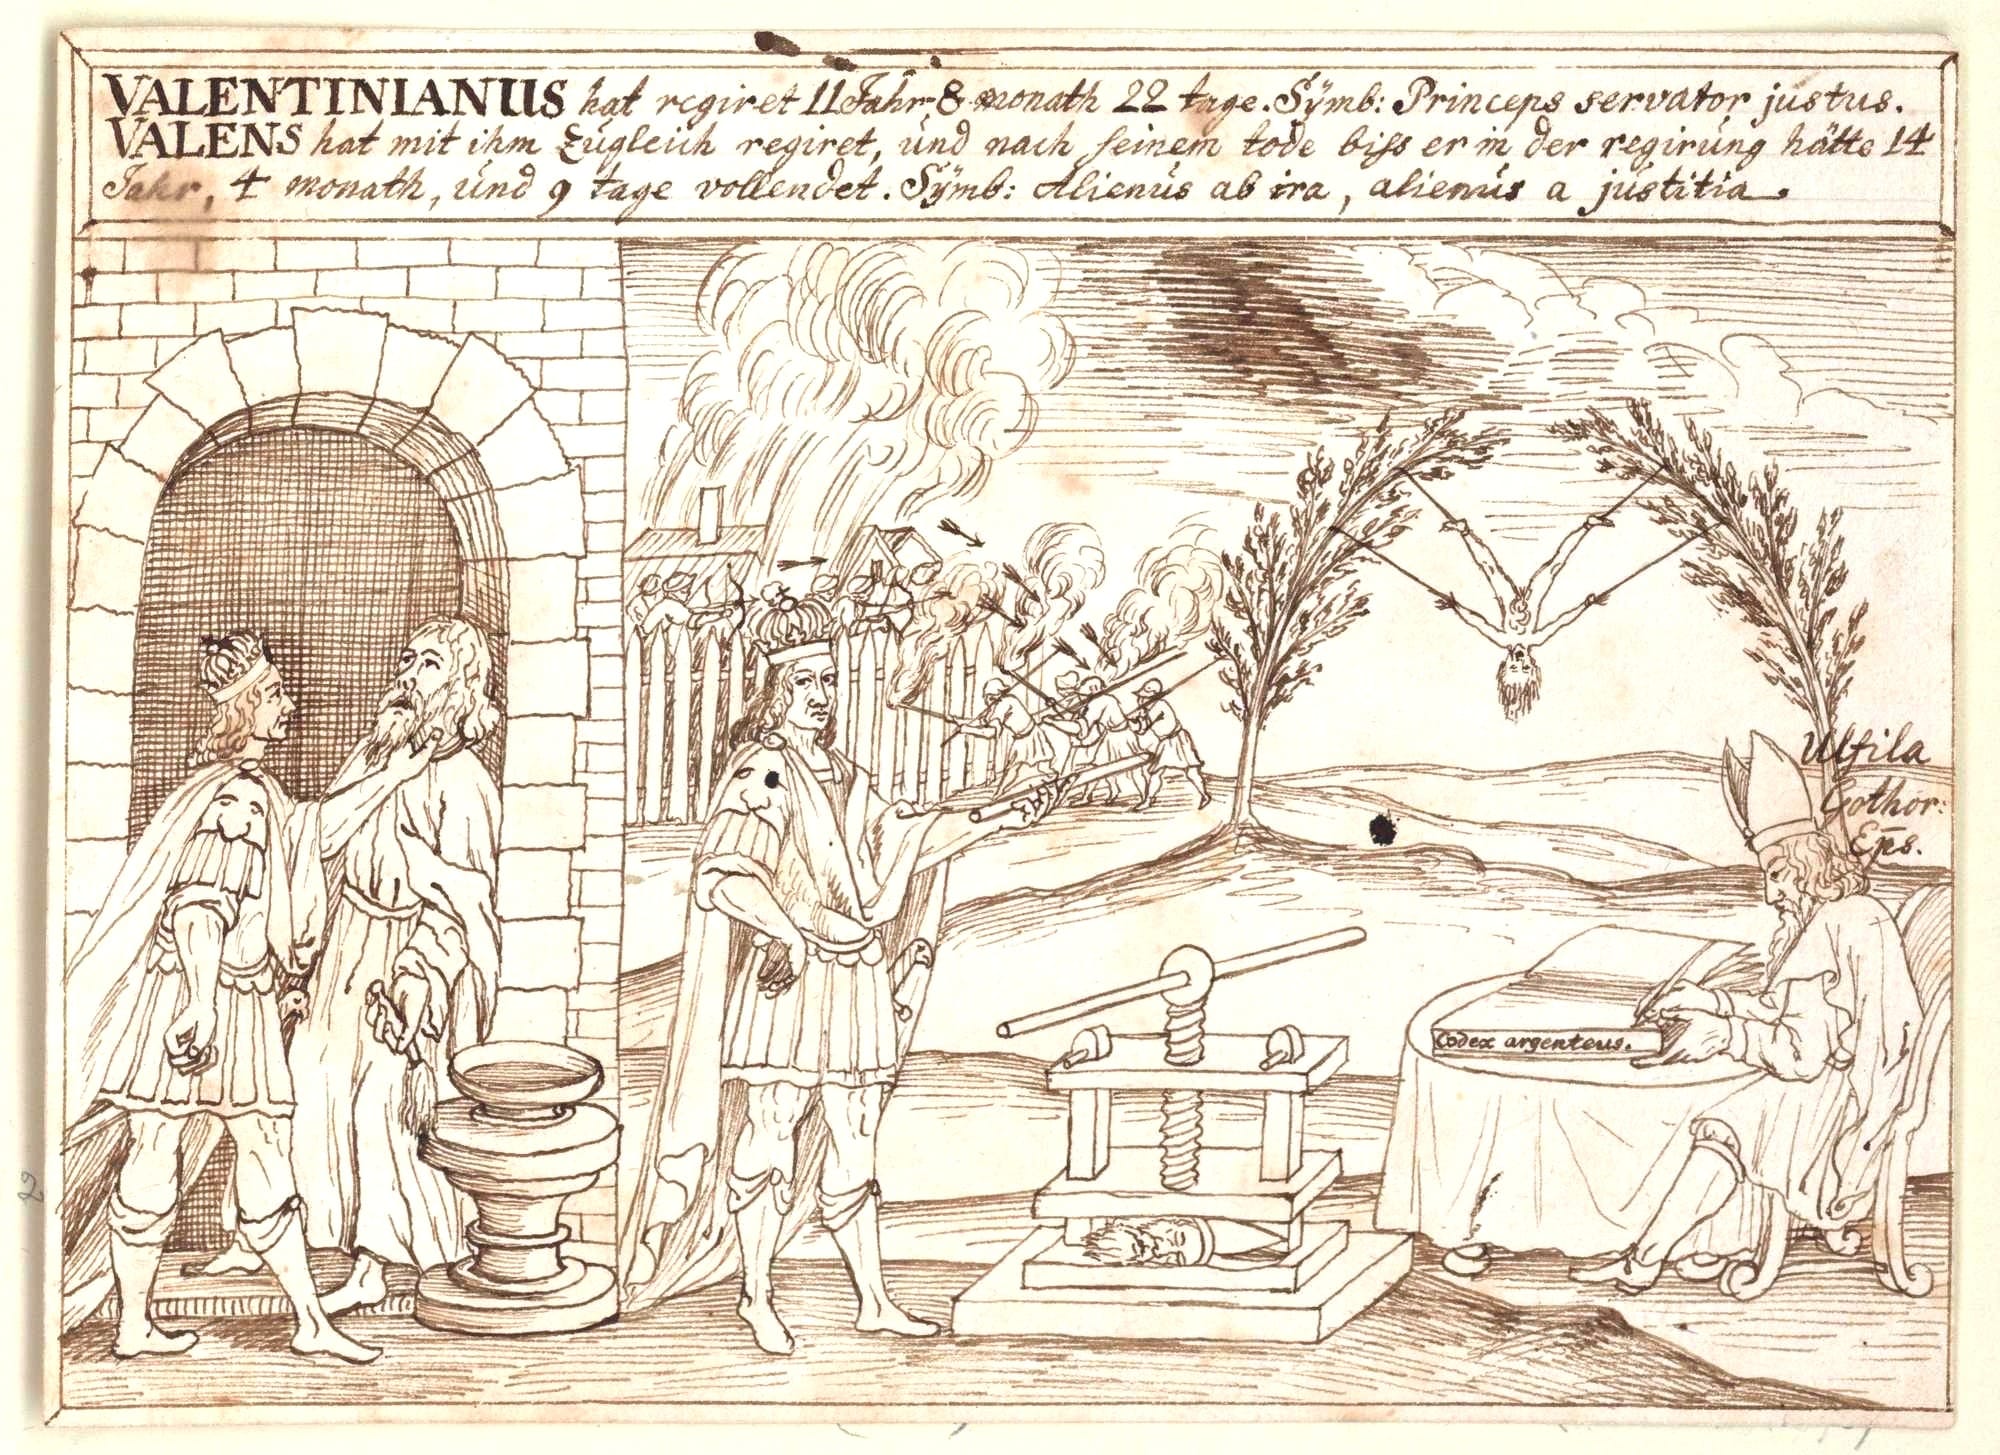 VALENTINIANUS hat regiret 11 Jahr 8 monath 22 tage. Sÿmb: Princeps servator justus.
VALENS hat mit ihm zugleich regiret, und nach seinem tode biss er in der regirung hätte 14
Jahr, 4 monath, und 9 tage vollendet. Sÿmb: Alienus ab ira, alienus a justitia.
Ulfila
Gothor:
Ep̄s.
Codex argenteus.
2